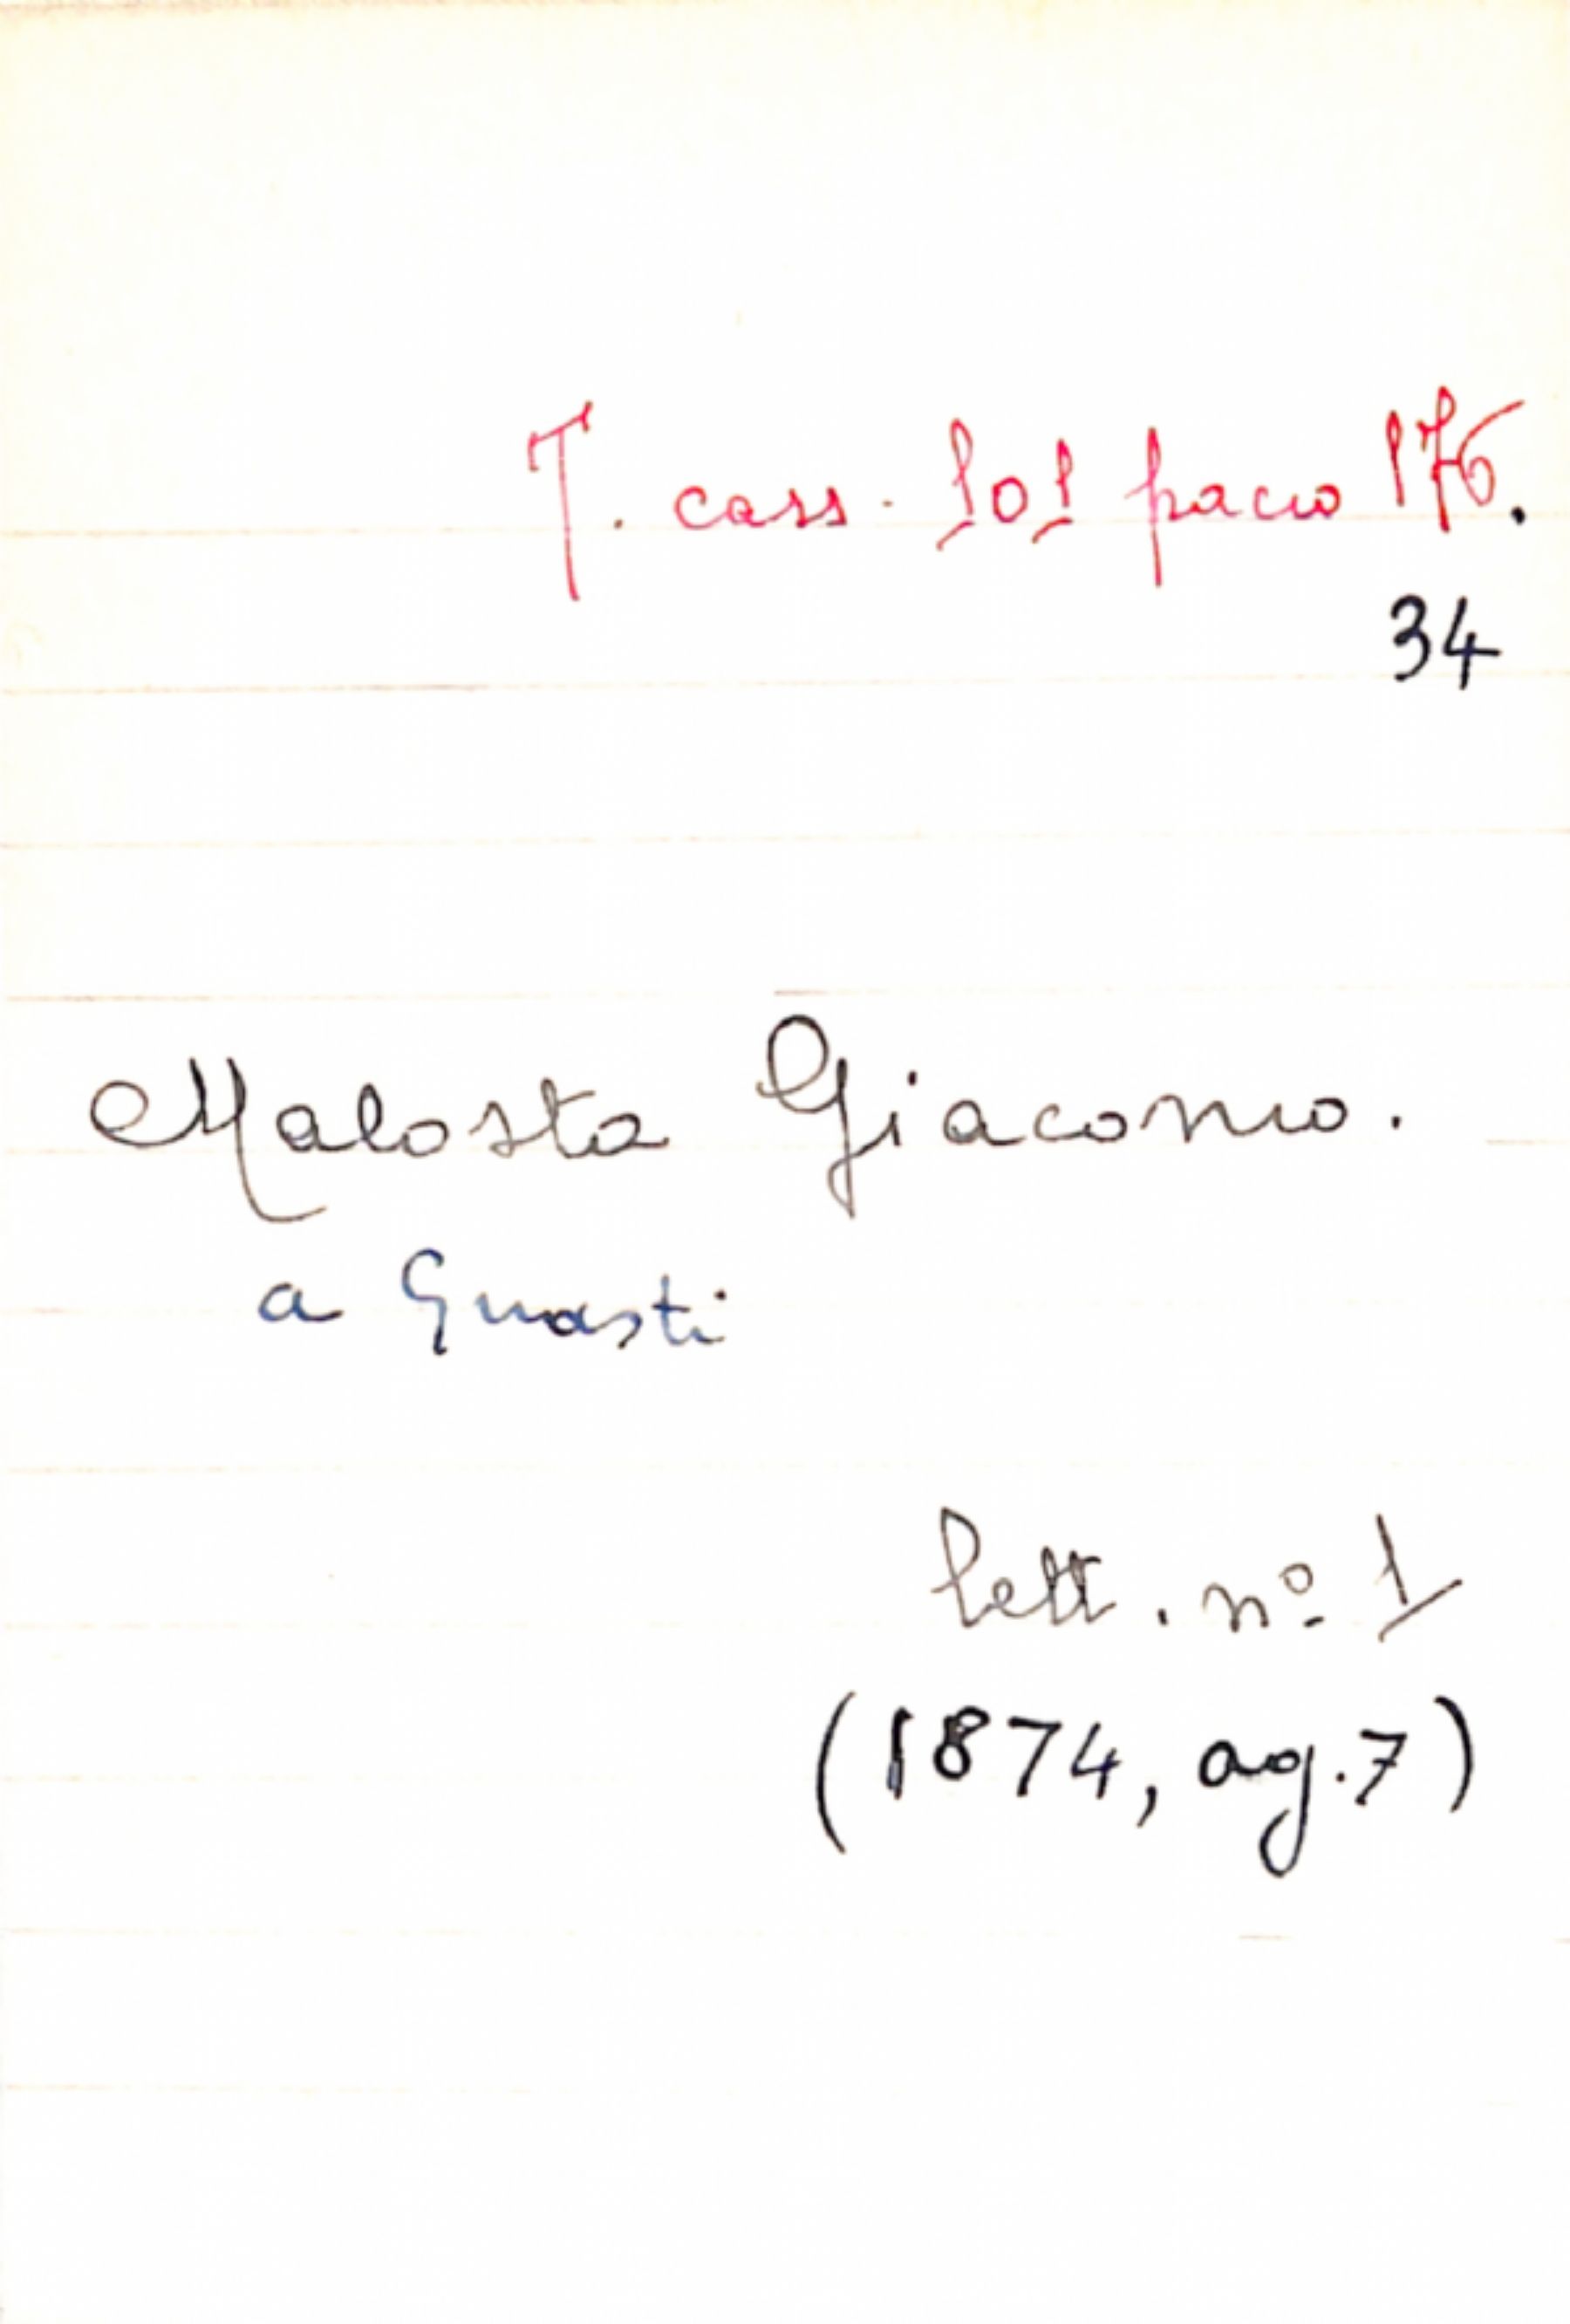 T. cass. 101 pacco 176.
34
Malosta Giacomo.
a Guasti
lett. nº 1
(1874, ag. 7)